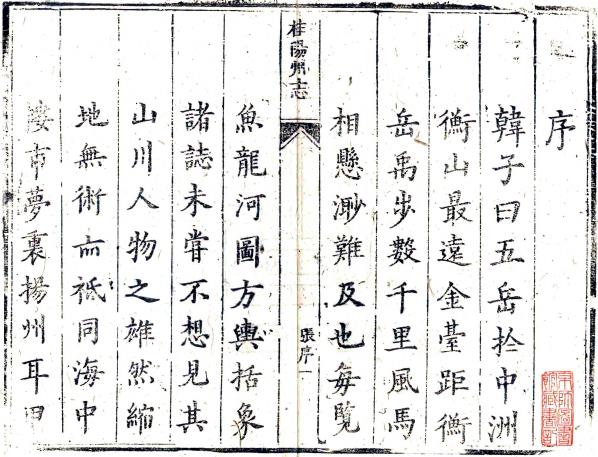 序
韓子曰五岳扵中洲
衡山最遠金臺距衡
岳禹步數千里風馬
相懸渺難及也每覽
桂陽州志
張序一
魚龍河圖方輿括象
諸誌未甞不想見其
山川人物之雄然縮
地無術亦祗同海中
市夢裏揚州耳